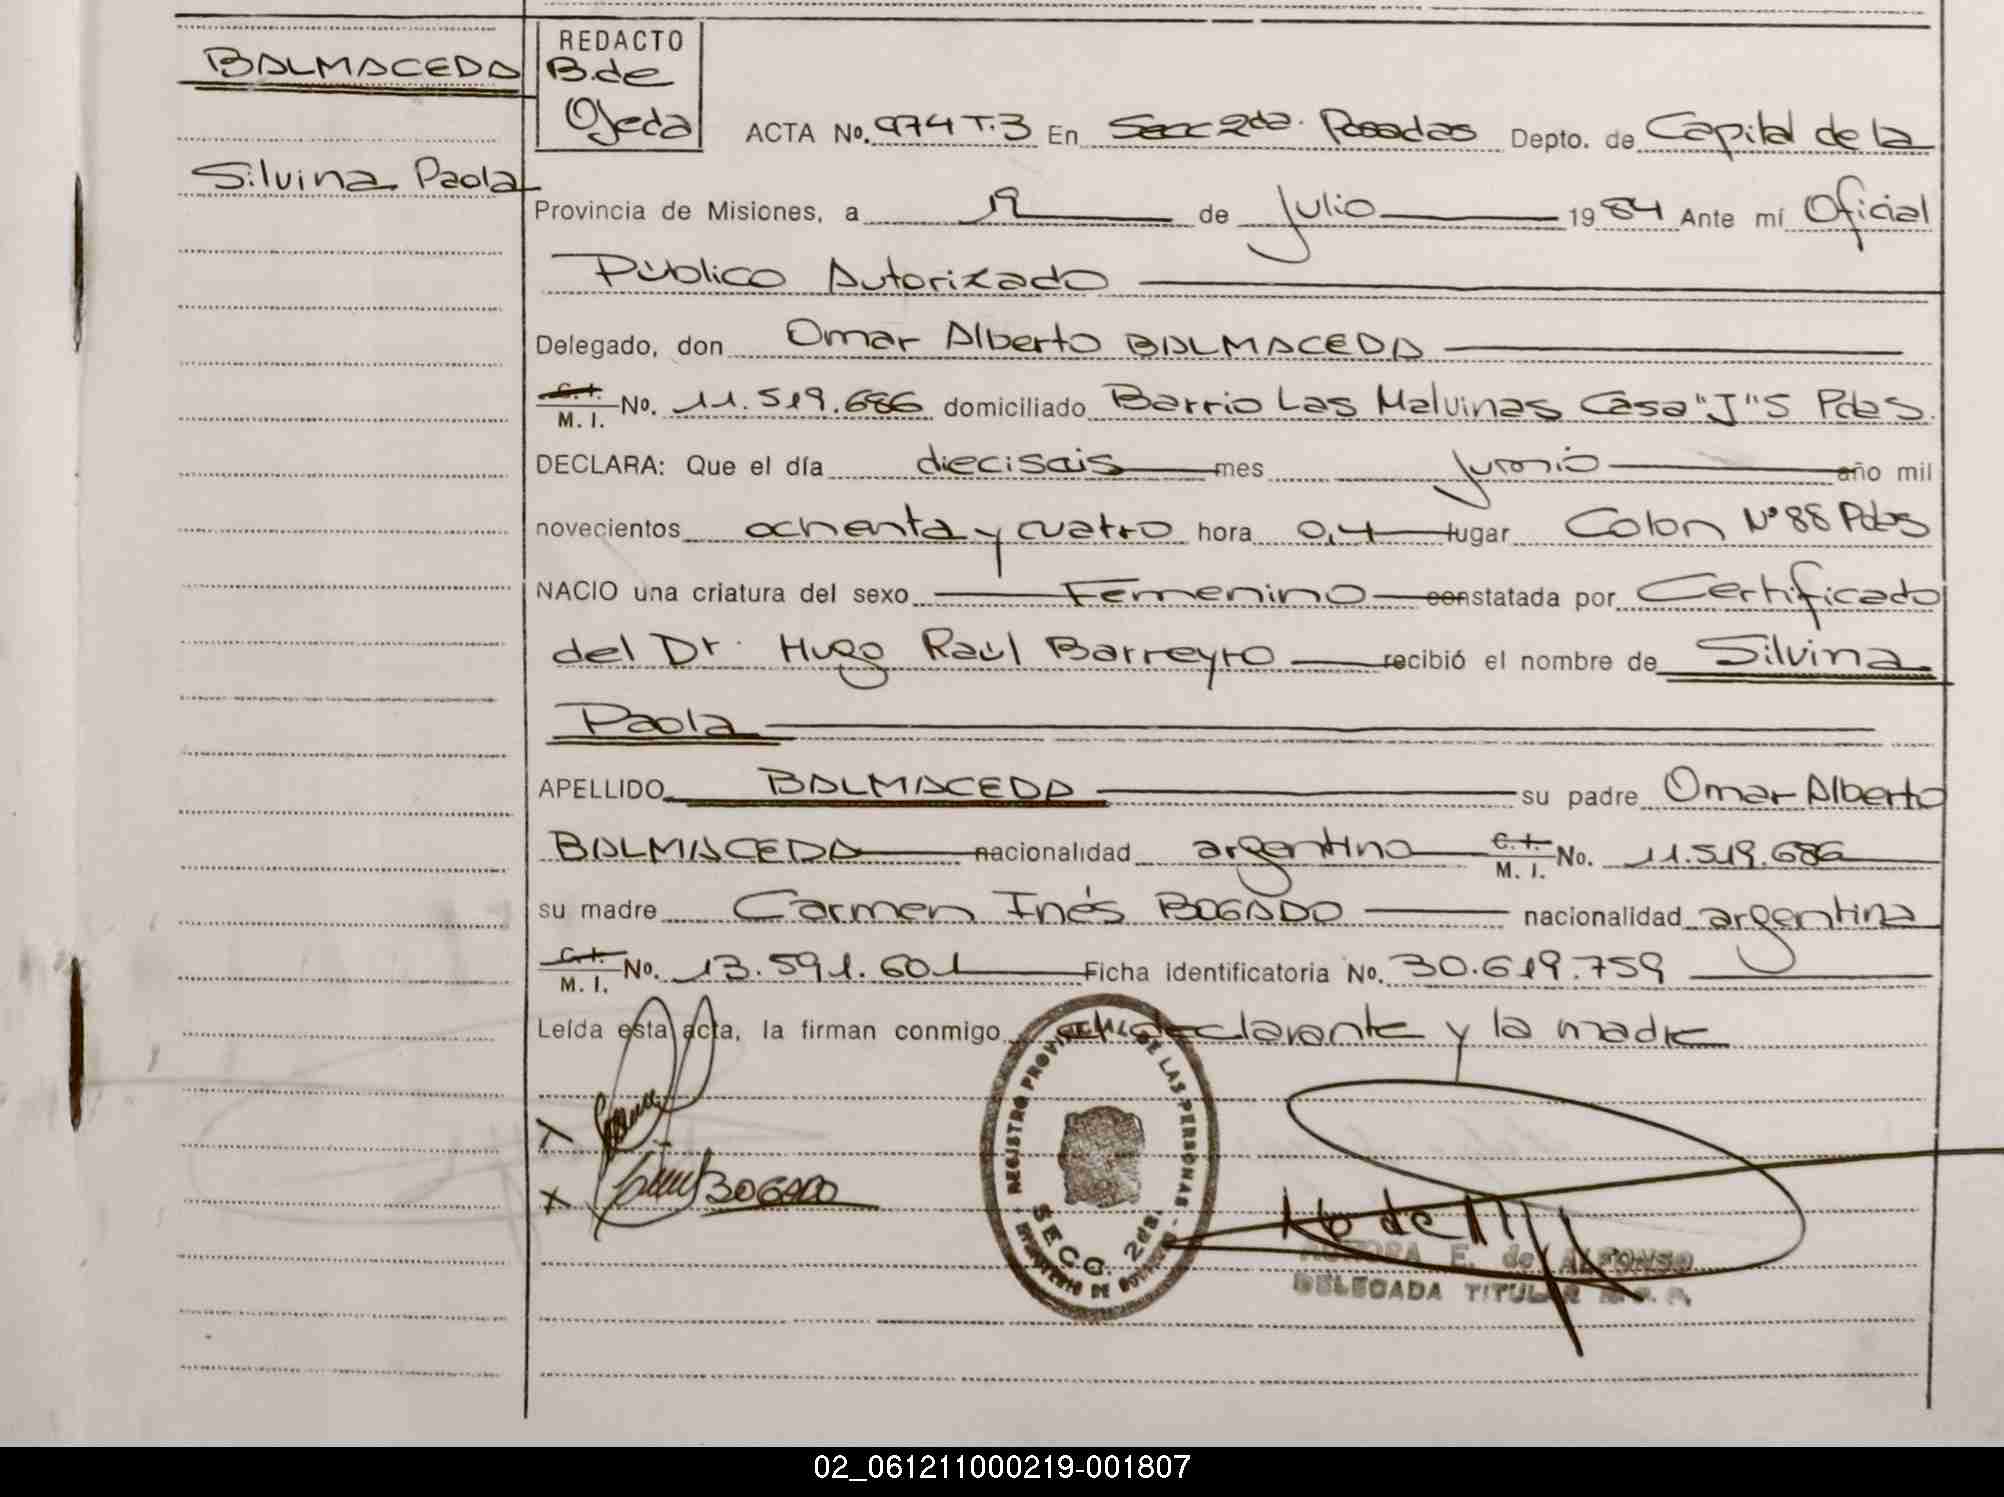 BALMACEDA
Silvina Paola
REDACTO
B. de
Ojeda
ACTA No. 974 T.3 En Secc 2da. Posadas Depto. de Capital de la
Provincia de Misiones, a 19 de Julio 1984 Ante mí Oficial
Público Autorizado
Delegado, don Omar Alberto BALMACEDA
C.I.
M. I. No. 11.519.686 domiciliado Barrio Las Malvinas Casa "J" 5 Pdas.
DECLARA: Que el día diecisais mes junio año mil
novecientos ochenta y cuatro hora 0,4 lugar Colon Nº 88 Pdas
NACIO una criatura del sexo Femenino constatada por Certificado
del Dr. Hugo Raúl Barreyro recibió el nombre de Silvina
Paola
APELLIDO BALMACEDA su padre Omar Alberto
BALMACEDA nacionalidad argentino C.I.
M. I. No. 11.519.686
su madre Carmen Inés BOGADO nacionalidad argentina
C.I.
M. I. No. 13.591.601 Ficha identificatoria No. 30.619.759
Leída esta acta, la firman conmigo el declarante y la madre
REGISTRO PROVINCIAL DE LAS PERSONAS
SECC. 2da.
BOGADO
E. de ALFONSO
DELEGADA TITULAR
02_061211000219-001807